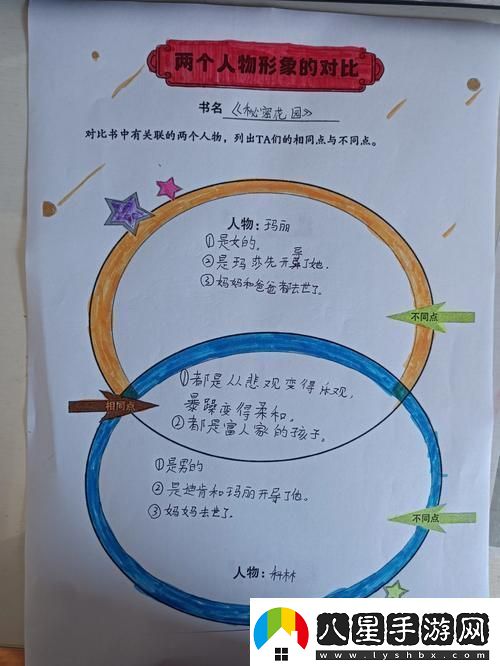 两个人物形象的对比
书名 《秘密花园》
对比书中有关联的两个人物，列出TA们的相同点与不同点。
人物：玛丽
①是女的。
②是玛莎先开导了她.
③妈妈和爸爸都去世了。
不同点
①都是从悲观变得乐观，
暴躁变得柔和。
相同点
②都是富人家的孩子。
①是男的
②是迪肯和玛丽开导了他。
③妈妈去世了.
不同点
人物：科林
八星手游网
www.lyshbx.com